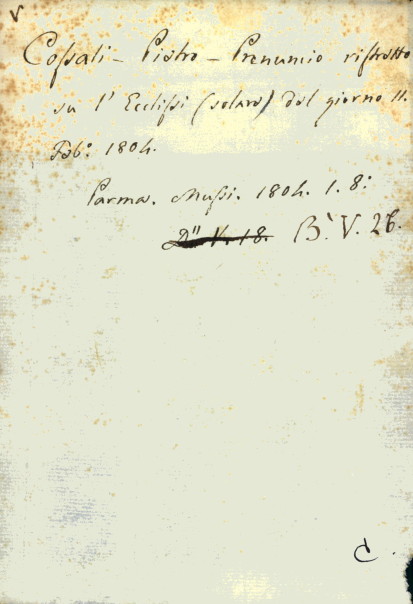 V
Coſsali - Pietro - Prenunzio riſtretto
su l' Eccliſsi (solare) del giorno 11.
Feb.º 1804.
Parma. Muſsi. 1804. 1. 8:
D" V. 18. B` V. 26.
C.